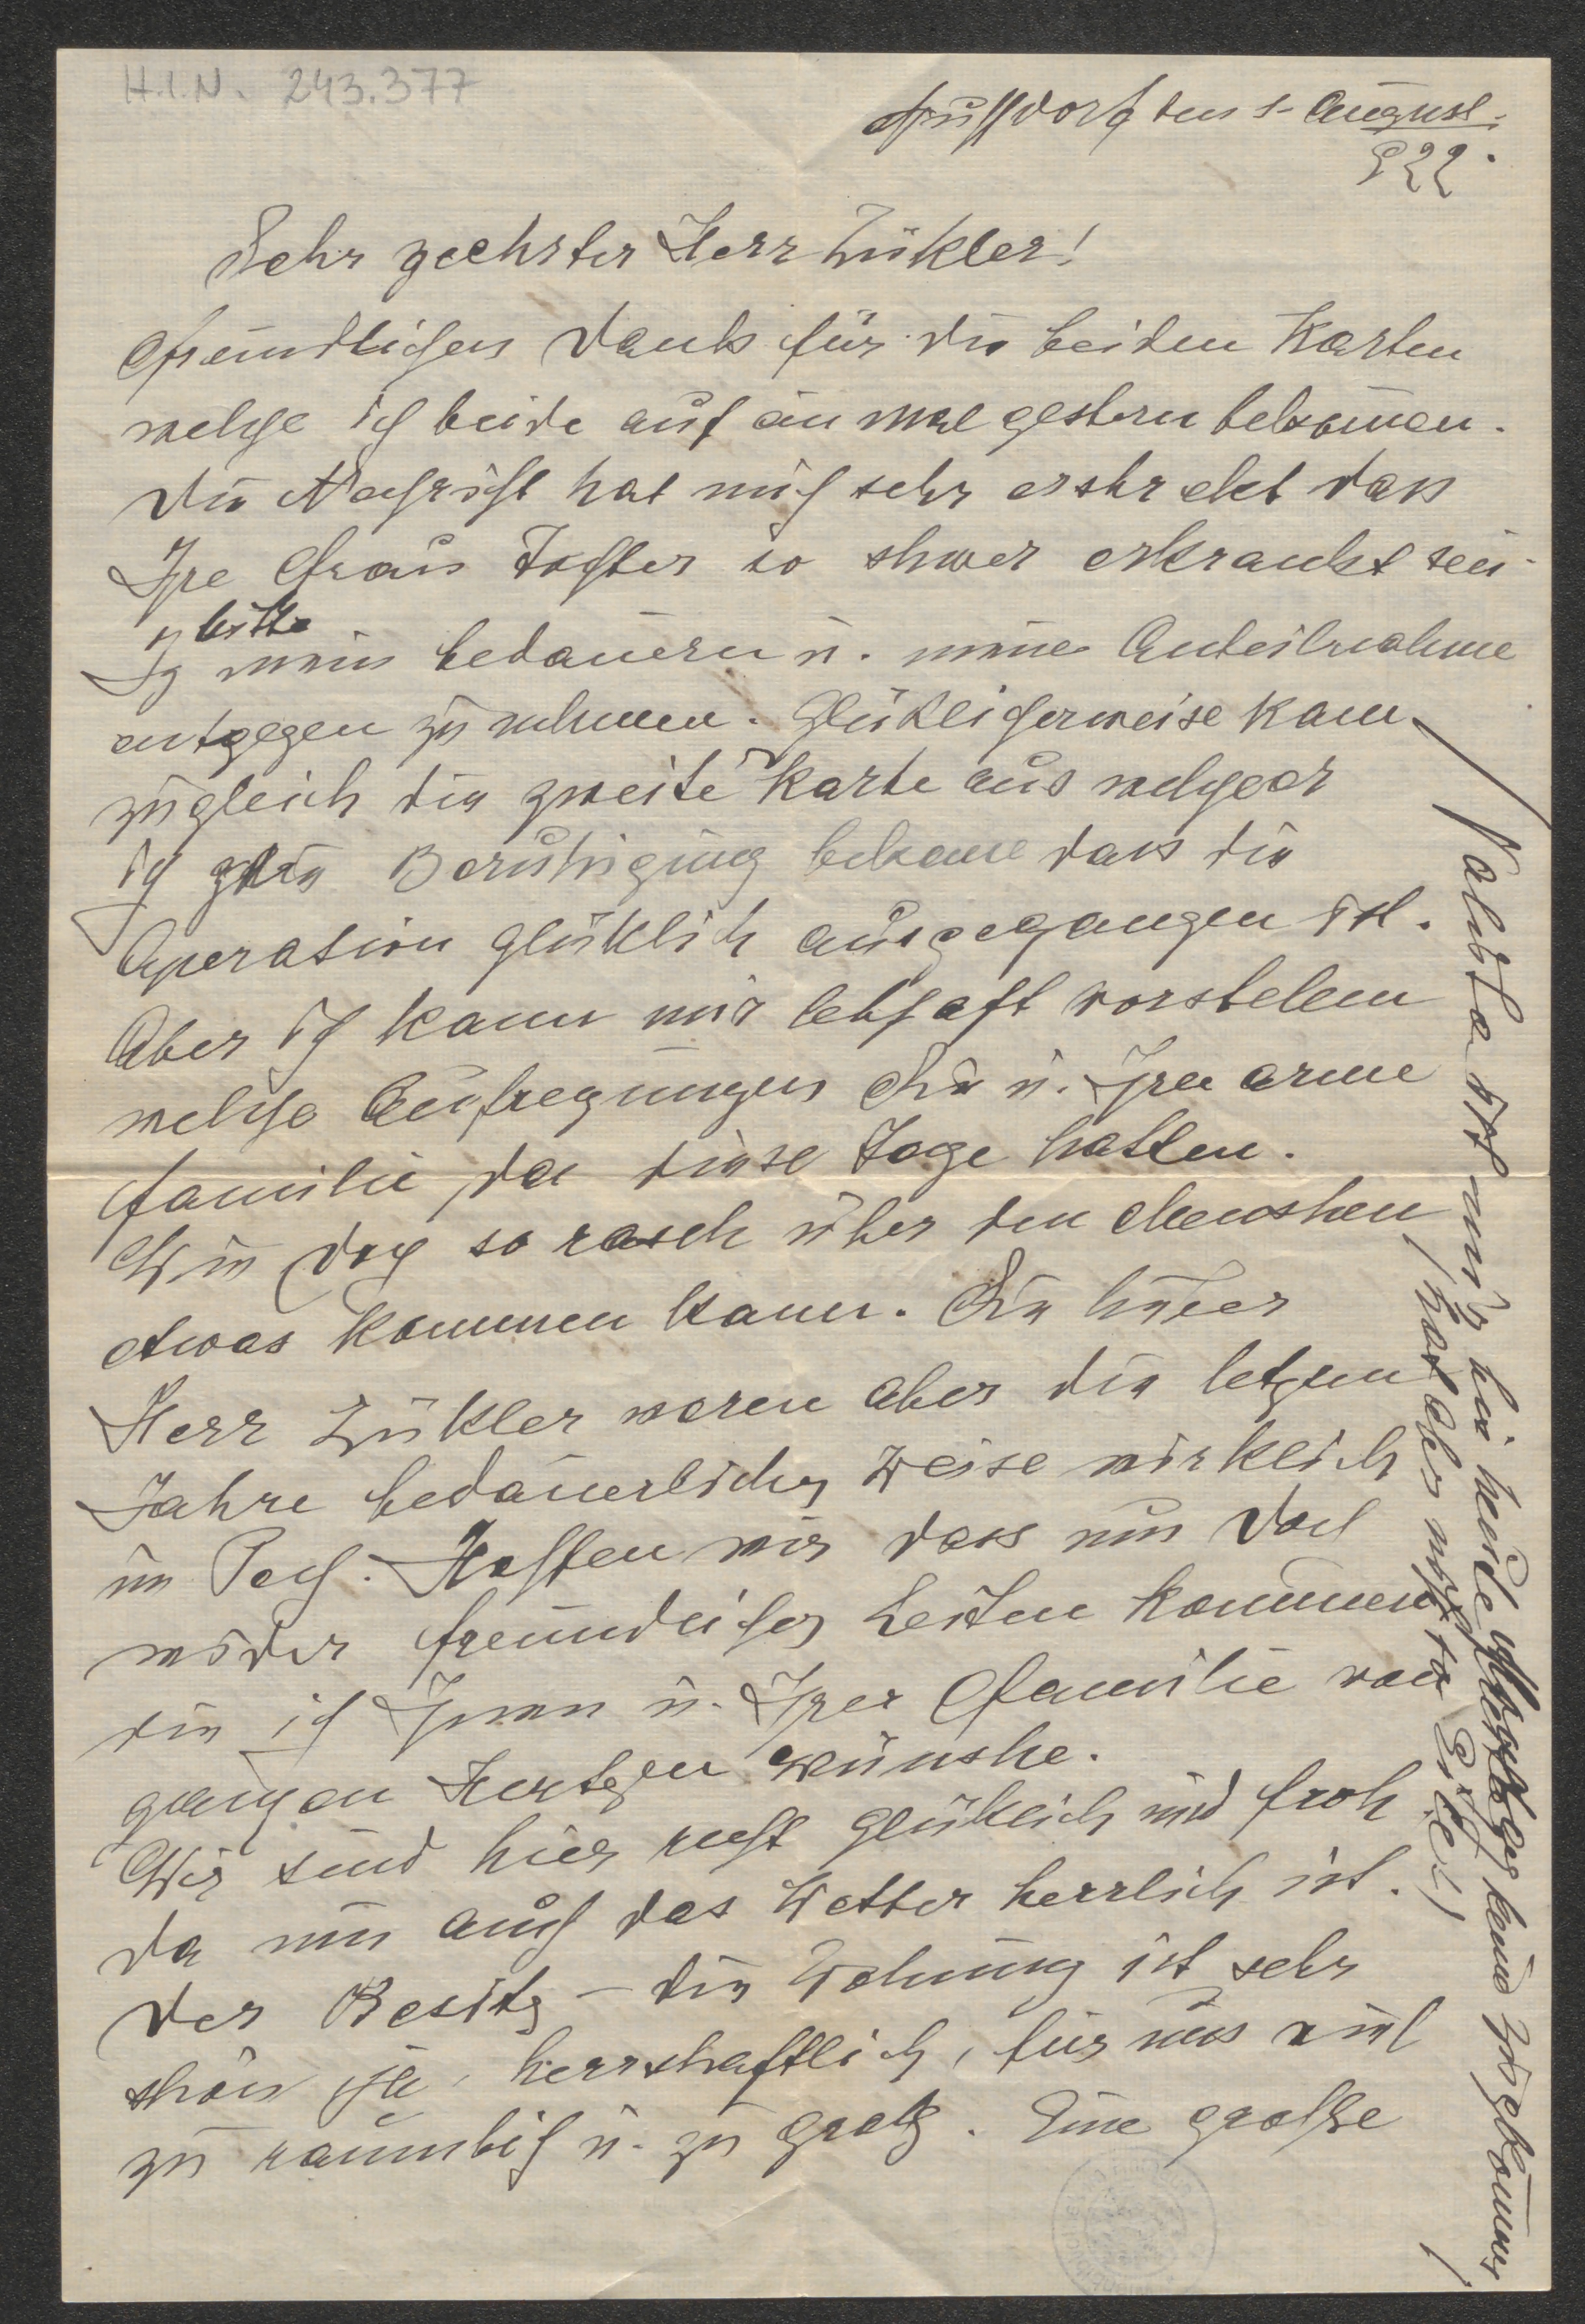 H.I.N. 243.377
Nussdorf den 1. August.
922.
Sehr geehrter Herr Zükler!
Freundlichen Dank für die beiden Karten
welche ich beide auf ein mal gestern bekomen.
Die Nachricht hat mich sehr ershrekt dass
Ihre Frau Tochter so shwer erkrankt sei.
bitte
Ich mein bedauern u. meine Anteilnahme
entgegen zu nehmen. Glüklicherweise kam
zugleich die zweite Karte aus welcher
ich zur Beruhigung bekame dass die
Operation glüklich ausgegangen ist.
Aber ich kann mir lebhaft vorstelen
welche Aufregungen Sie u. Ihre arme
Familie da diese Tage hatten.
Wie doch so rasch über den Menshen
etwas kommen kann. Sie lieber
Herr Zükler waren aber die letzen
Jahre bedauerlicher Weise wirklich
im Pech. Hoffen wir dass nun doch
wieder freundlicher Zeiten kommen
die ich Ihnen u. Ihrer Familie von
ganzen Hertzen wünshe.
Wir sind hier recht glüklich und froh
da nun auch das Wetter herrlich ist.
Der Besitz – die Wohnung ist sehr
shön ja, herrshaftlich, für uns viel
zu räumlich u. zu grohs. Eine grohse
/ selbe ist mir bis heute keine zugekomen,
hat aber nichts Eile. /